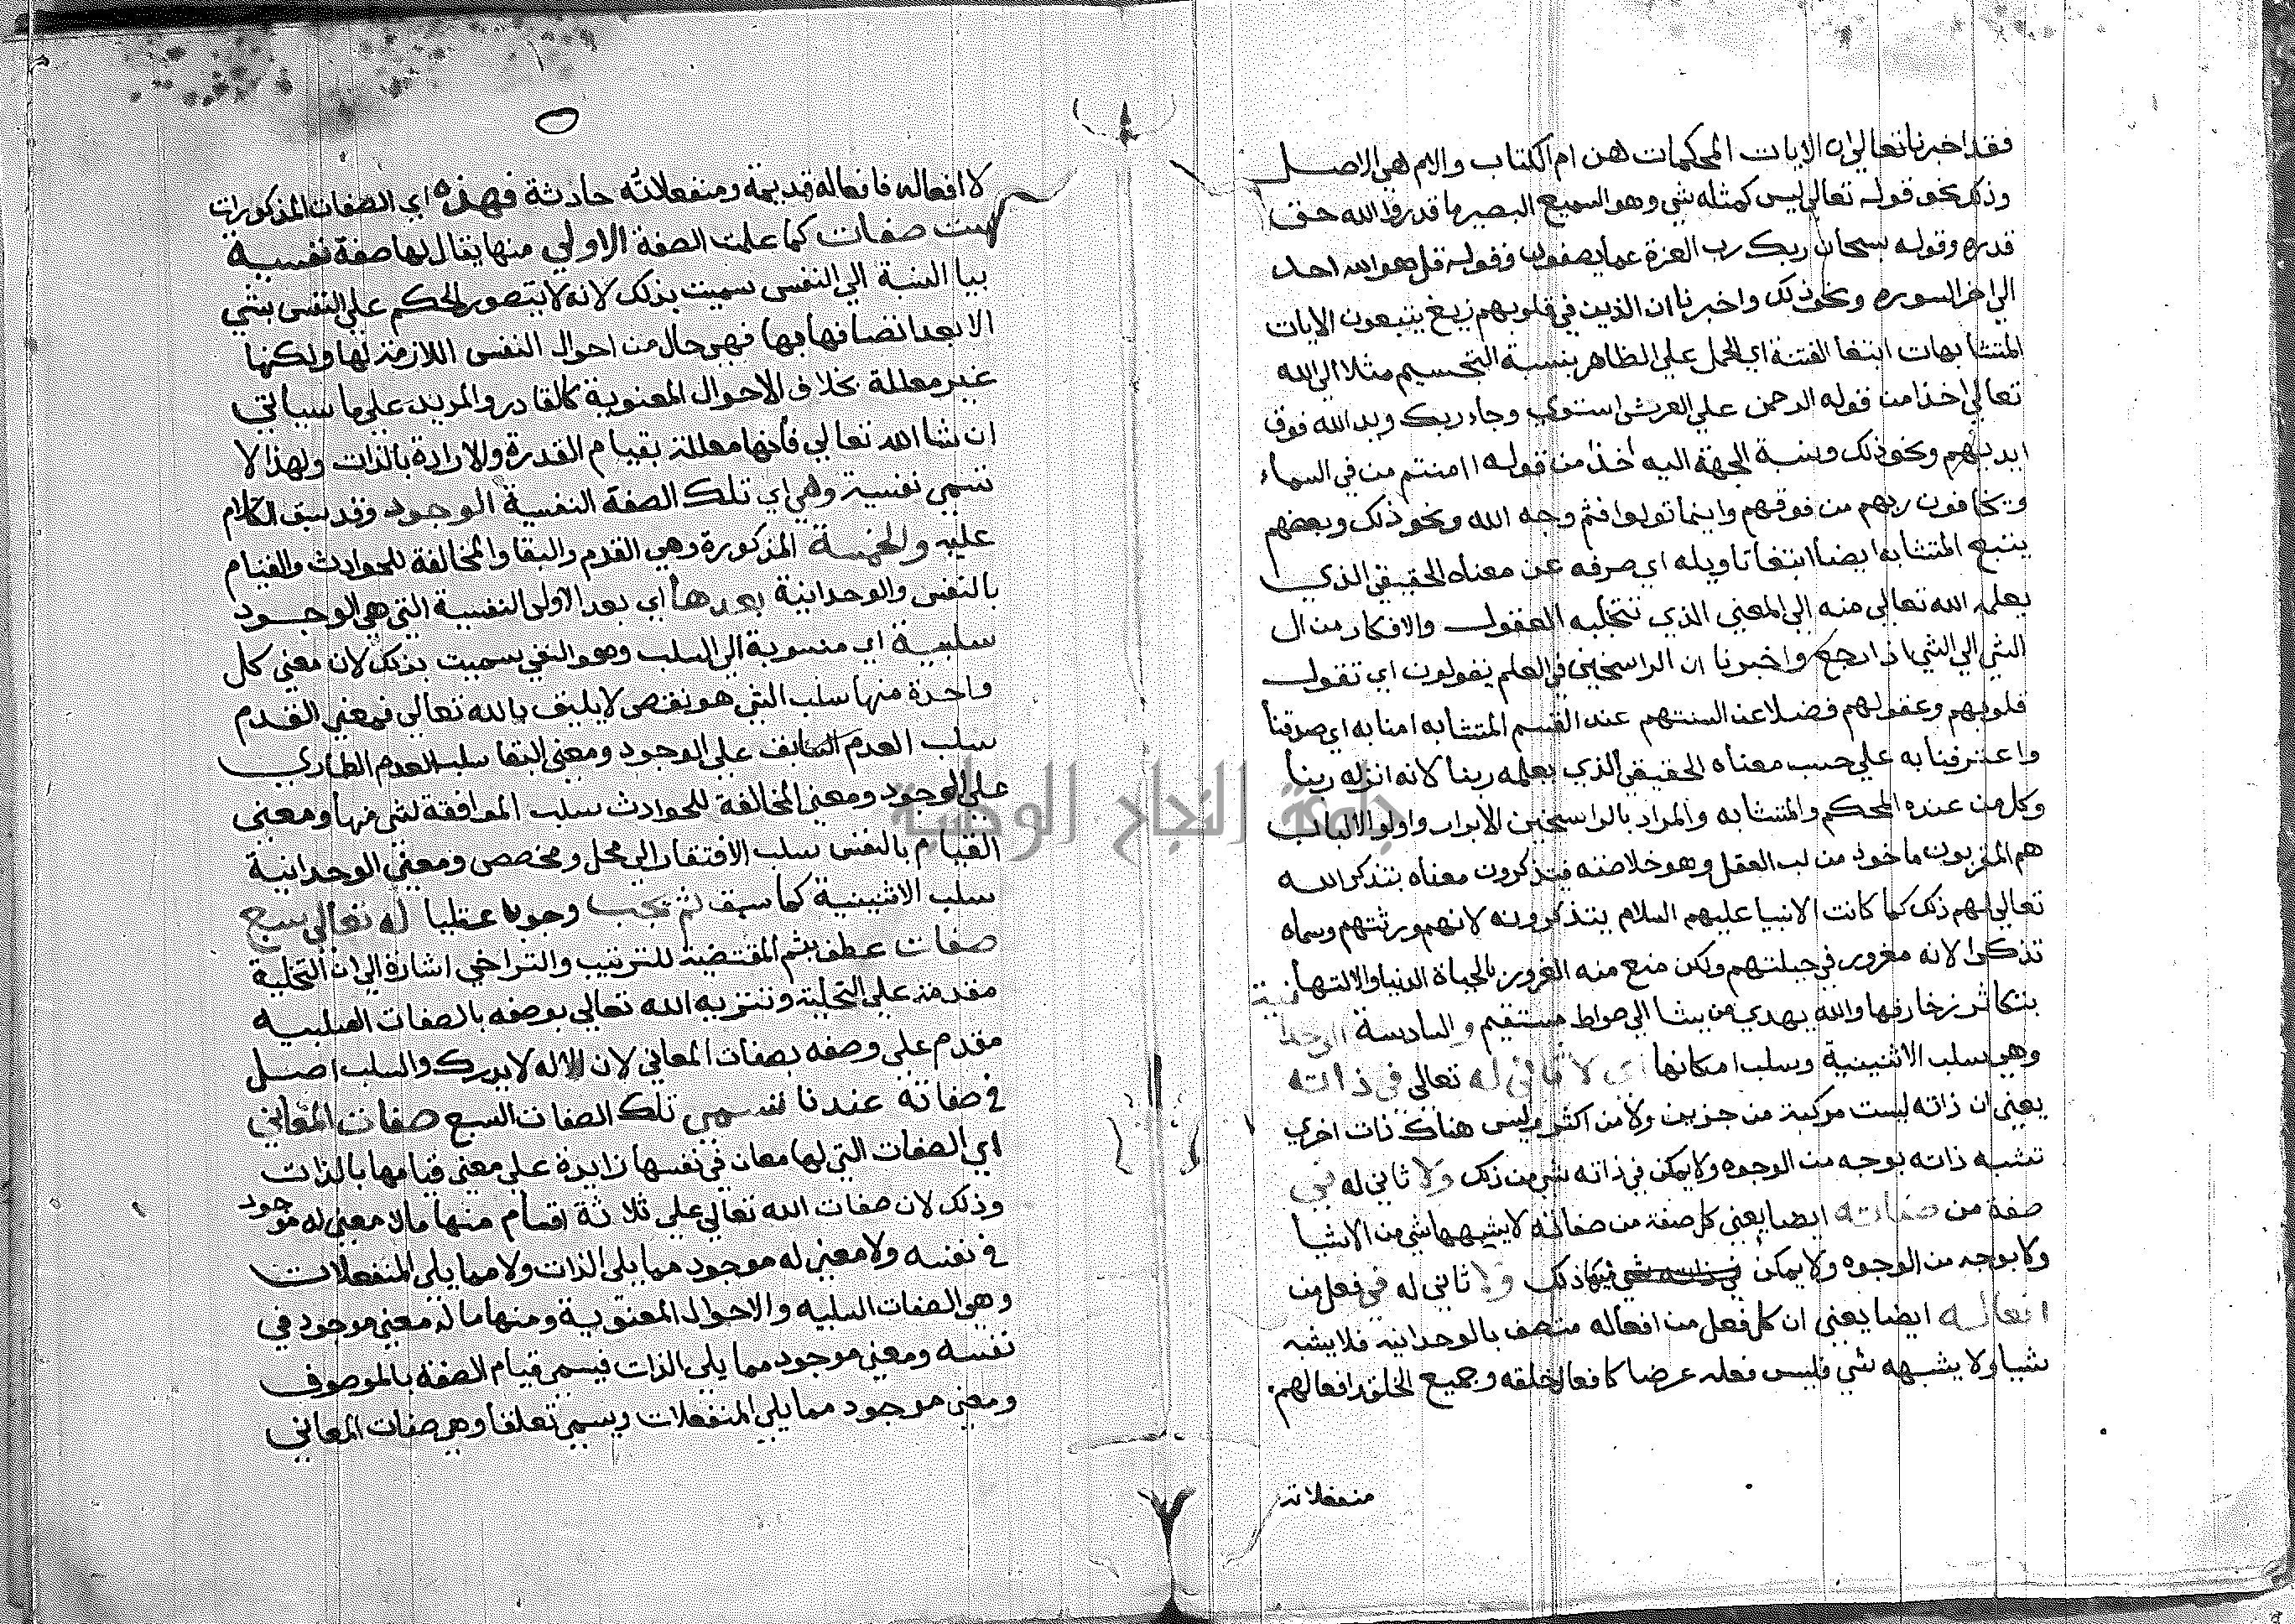 فقد اخبرنا تعالى ان الايات المحكمات هن ام الكتاب والام هي الاصل
وذكر نحو قوله تعالى ليس كمثله شي وهو السميع البصير ما قدروا الله حق
قدره وقوله سبحان ربك رب العزة عما يصفون وقوله قل هو الله احد
الى اخر السوره ونحو ذلك واخبرنا ان الذين في قلوبهم زيغ يتبعون الايات
المتشابهات ابتغا الفتنة اي الحمل على الظاهر بنسبة التجسيم مثلا الى الله
تعالى اخذا من قوله الرحمن على العرش استوى وجاء ربك ويد الله فوق
ايديهم ونحو ذلك ونسبة الجهة اليه اخذا من قوله اامنتم من في السماء
ويخافون ربهم من فوقهم واينما تولوا فثم وجه الله ونحو ذلك وبعضهم
يتبع المتشابه ايضا ابتغا تاويله اي صرفه عن معناه الحقيقي الذي
يعلمه الله تعالى منه الى المعنى الذي تنتجلبه العقول والافكار من ال
الشي الى الشي اذا رجع واخبرنا ان الراسخين في العلم يقولون اي تقول
قلوبهم وعقولهم فضلا عن السنتهم عند القسم المتشابه امنا به اي صدقنا
واعترفنا به على حسب معناه الحقيقي الذي يعلمه ربنا لانه انزله ربنا
وكل من عنده المحكم والمتشابه والمراد بالراسخين الابرار واولوا الالباب
هم المقربون ماخوذ من لب العقل وهو خلاصته فيتذكرون معناه بتذكر الله
تعالى لهم ذلك كما كانت الانبيا عليهم السلام يتذكرونه لانهم ورثتهم وسماه
تذكرا لانه مغروز في جبلتهم ولكن منع منه الغرور بالحياة الدنيا والالتها
بتكاثر زخارفها والله يهدي من يشا الى صراط مستقيم والسادسة الوحدانية
وهي سلب الاثنينية وسلب امكانها اي لا ثاني له تعالى في ذاته
يعني ان ذاته ليست مركبة من جزين ولا من اكثر وليس هناك ذات اخرى
تشبه ذاته بوجه من الوجوه ولا يمكن في ذاته شي من ذلك ولا ثاني له في
صفة من صفاته ايضا يعني كل صفة من صفاته لا يشبهها شي من الاشيا
ولا بوجه من الوجوه ولا يمكن فيها ذلك ولا ثاني له في فعل من
افعاله ايضا يعني ان كل فعل من افعاله متصف بالوحدانيه فلا يشبه
شيا ولا يشبهه شي فليس فعله عرضا كافعال خلقه وجميع الخلق افعالهم
منفعلاته
لا افعاله فافعاله قديمة ومنفعلاته حادثة فهذه اي الصفات المذكورات
ست صفات كما علمت الصفة الاولى منها يقال لها صفة نفسية
بيا النسبة الى النفس سميت بذلك لانه لا يتصور الحكم على النفس بشي
الا بعد اتصافها بها فهي حال من احوال النفس اللازمة لها ولكنها
غير معللة بخلاف الاحوال المعنوية كالقادر والمريد على ما سياتي
ان شا الله تعالى فانها معللة بقيام القدرة والارادة بالذات ولهذا لا
تسمى نفسية وهي اي تلك الصفة النفسية الوجود وقد سبق الكلام
عليه والخمسة المذكورة وهي القدم والبقا والمخالفة للحوادث والقيام
بالنفس والوحدانية بعدها اي بعد الاولى النفسية التي هي الوجود
سلبية اي منسوبة الى السلب وهو النفي سميت بذلك لان معنى كل
واحدة منها سلب الشي هو نقص لا يليق بالله تعالى فمعنى القدم
سلب العدم السابق على الوجود ومعنى البقا سلب العدم الطاري
على الوجود ومعنى المخالفة للحوادث سلب الموافقة لشي منها ومعنى
القيام بالنفس سلب الافتقار الى محل ومخصص ومعنى الوحدانية
سلب الاثنينية كما سبق ثم يجب وجوبا عقليا له تعالى سبع
صفات عطف بثم المقتضية للترتيب والتراخي اشارة الى ان التخلية
مقدمة على التحلية وتنزيه الله تعالى بوصفه بالصفات السلبيه
مقدم على وصفه بصفات المعاني لان الاله لا يدرك والسلب اصل
في صفاته عندنا تسمى تلك الصفات السبع صفات المعاني
اي الصفات التي لها معان في نفسها زايدة على معنى قيامها بالذات
وذلك لان صفات الله تعالى على ثلاثة اقسام منها ما لا معنى له موجود
في نفسه ولا معنى له موجود مما يلي الذات ولا مما يلي المنفعلات
وهي الصفات السلبيه والاحوال المعنوية ومنها ما له معنى موجود في
نفسه ومعنى موجود مما يلي الذات فيسمى قيام الصفة بالموصوف
ومعنى موجود مما يلي المنفعلات ويسمى تعلقا وهي صفات المعاني
جامعة النجاح الوطنية